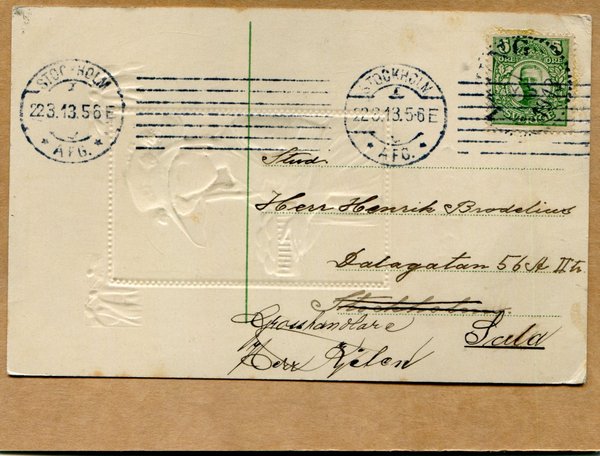 STOCKHOLM
22.3.13.5-6 E
AFG.
STOCKHOLM
22.3.13.5-6 E
AFG.
ÖRE ÖRE
SVERIGE
Stud
Herr Henrik Brodelius
Dalagatan 56 A II tr.
Stockholm.
Grosshandlare
Sala
Herr Kjelen